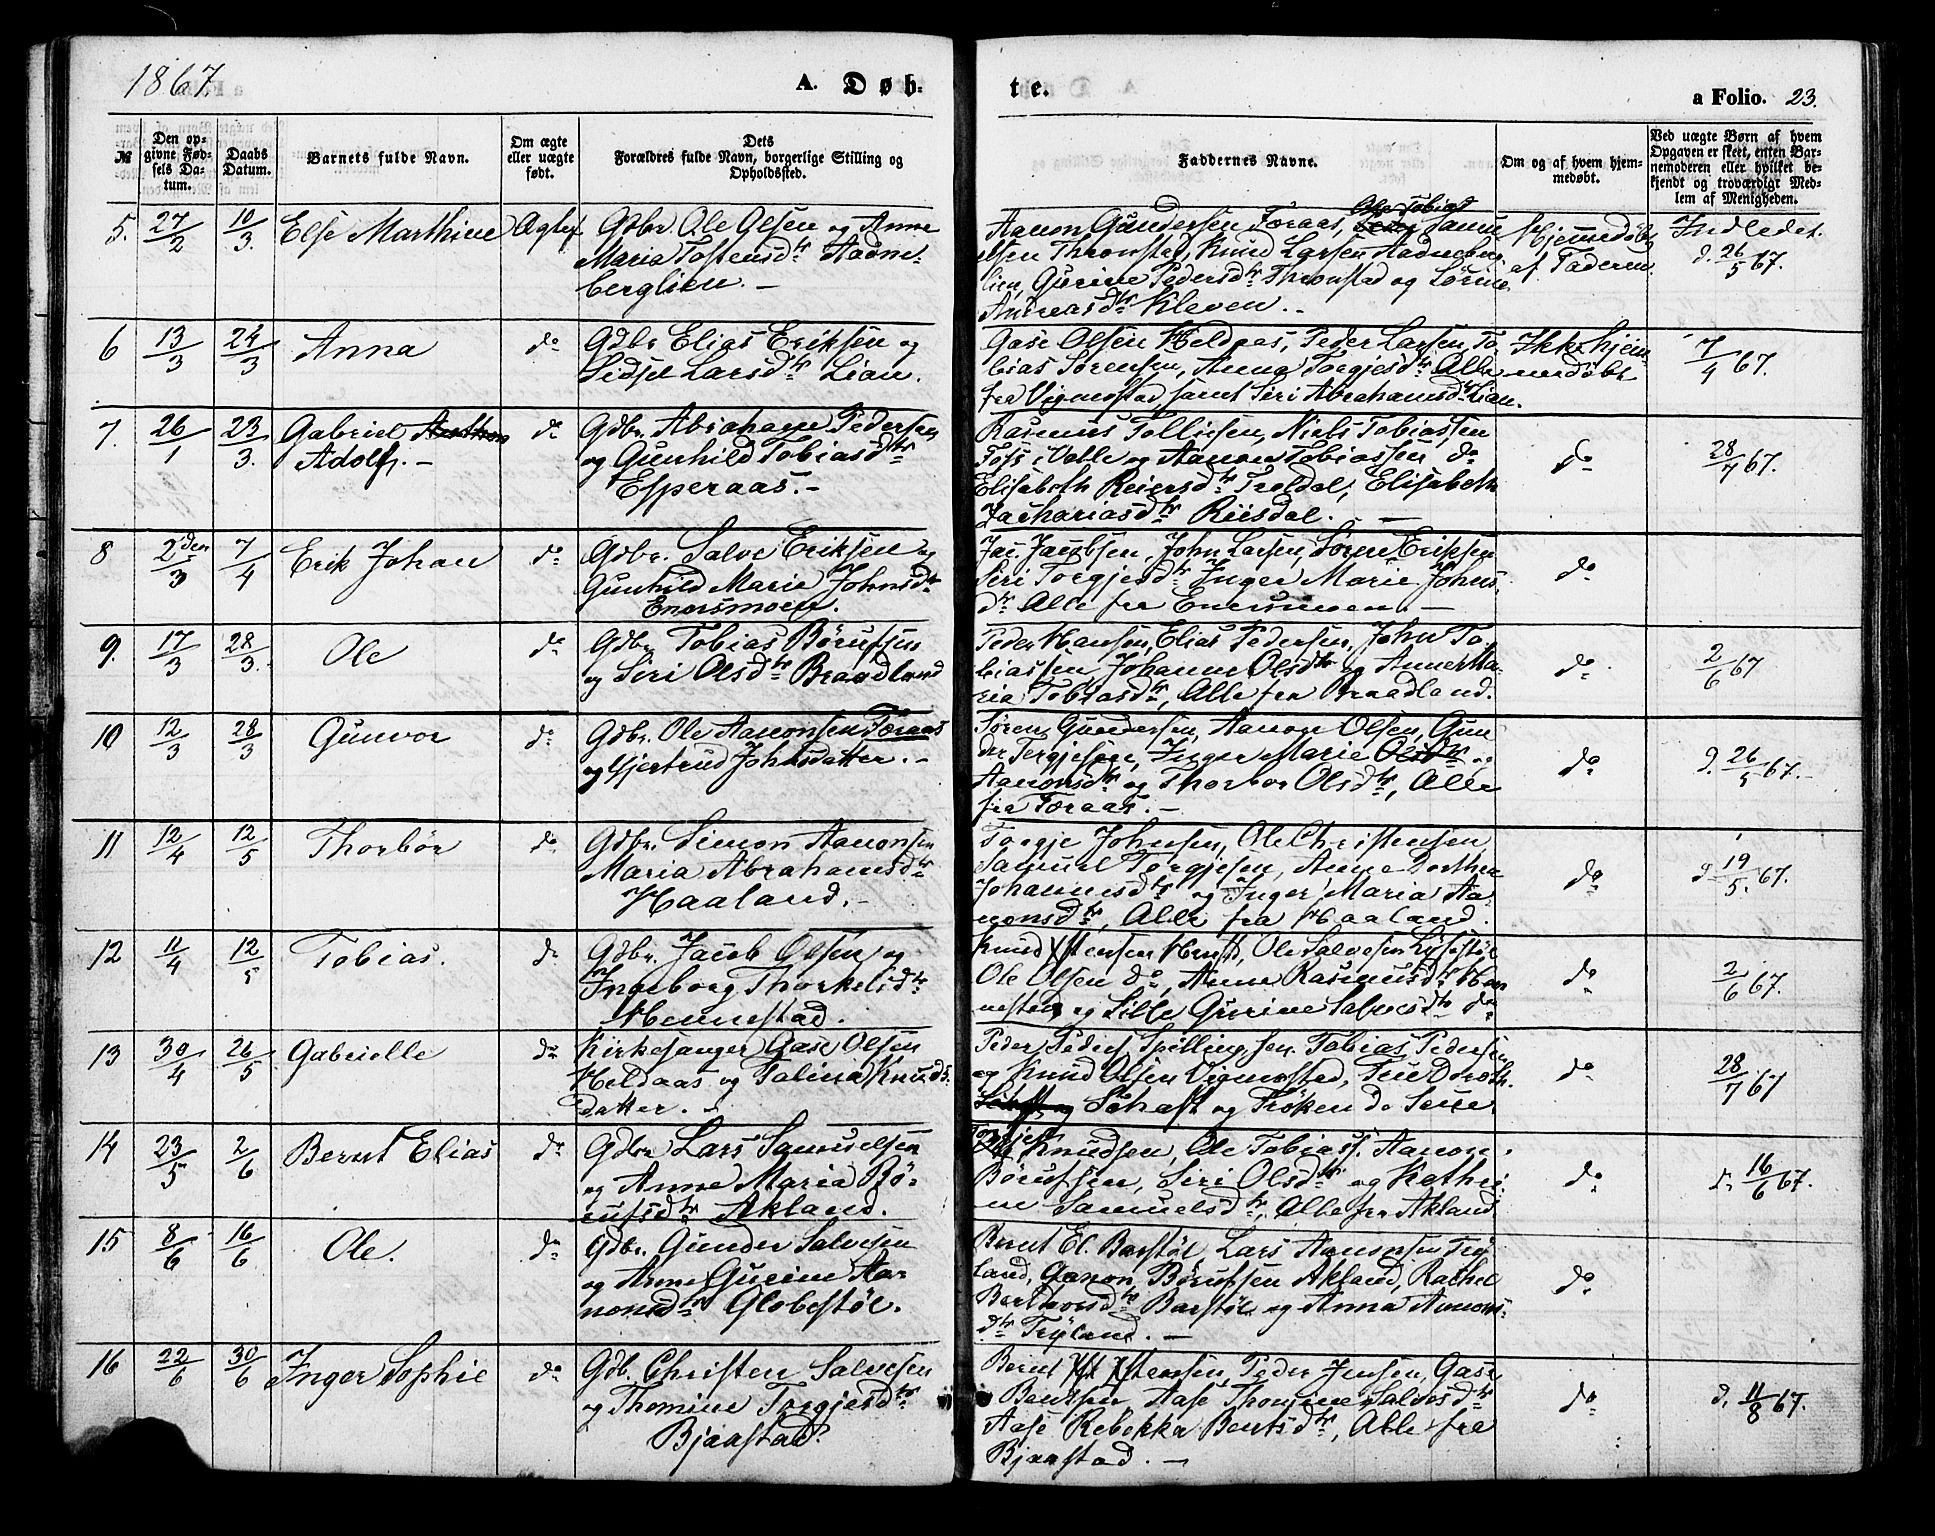 1867.
A. Døb-
te.
a Folio. 23.
№
Den op-
givne Fød-
sels Da-
tum.
Daabs
Datum.
Barnets fulde Navn.
Om ægte
eller uægte
født.
Dets
Forældres fulde Navn, borgerlige Stilling og
Opholdssted.
Faddernes Navne.
Om og af hvem hjem-
medøbt.
Ved uægte Børn af hvem
Opgaven er skeet, enten Bar-
nemoderen eller hvilket be-
kjendt og troværdigt Med-
lem af Menigheden.
5. 27/2 10/3. Else Marthine Ægtef
Gdbr. Ole Olsen og Anne
Maria Tostensdtr Aadne-
berglien. –
Ole Tobias
Aanon Gundersen Foraas, Samu
elsen Thronstad, Knud Larsen Aadneberg
lien, Gurine Pedersdtr Thronstad og Sørine
Andreasdtr Kleven. –
Hjemmedøbt
af Faderen
Indledet.
d. 26/5 67.
6 13/3 24/3 Anna do
Gdbr Elias Eriksen og
Sidsel Larsdtr Lian.
Gase Olsen Heldaas, Peder Larsen, To
bias Sørensen, Anna Torgjesdtr Alle
fra Vigmostad, samt Siri Abrahamsdtr Lian.
Ikke hjem-
medøbt
7/4 67.
7. 26/1 23/3. Gabriel
Adolf. – do
Gdbr. Abraham Pedersen
og Gunhild Tobiasdtr
Esperaas. –
Rasmus Tollissen, Niels Tobiassen
Foss, Valle og Aanon Tobiassen do
Elisabeth Reiersdtr Troldal, Elisabeth
Zachariasdtr Riisdal. –
do
28/4 67.
8 2den/3 7/4 Erik Johan do
Gdbr. Salve Eriksen og
Gunhild Marie Johnsdtr
Enersmoen.
Jac. Jacobsen, John Larsen, Sørine Eriksen
Siri Torgjesdtr Inger Marie Johns
dtr Alle fra Enersmoen. –
do
9. 17/3 28/3. Ole do
Gdbr Tobias Børufsen
og Siri Olsdtr Braadland
Peder Hansen, Elias Pedersen, John To
biassen Johanne Olsdtr og Anne Ma-
ria Tobiasdtr, Alle fra Braadland.
do
2/6 67
10 12/3 28/3 Gunvor do
Gdbr. Ole Aanonsen Foraas
og Gjertrud Johnsdatter. –
Søren Gundersen, Aanon Olsen, Gun
der Tergjesen, Inger Marie Olsdtr og
Aanonsdtr og Thorbor Olsdtr, Alle
fra Foraas. –
do
d. 26/5 67. –
11 12/4 12/5 Thorbør do
Gdbr. Simon Aanonsen
Maria Abrahamsdtr
Haaland. –
Torgje Johnsen, Ole Christensen,
Samuel Torgjesen, Anne Dorthea
Johannesdtr og Inger Maria Aa-
nonsdtr, Alle fra Haaland.
do
d. 19/5. 67.
12 11/4 12/5 Tobias. do
Gdbr. Jacob Olsen og
Ingeborg Thorkelsdtr
Hennestad.
Knud Ole Salvesen
Ole Olsen do, Anne Rasmusdtr Hen
nestad og Sille Gurine Salvesdtr do
do
2/6 67.
13 30/4 26/5 Gabrielle do
Kirkesanger Gase Olsen
Heldaas og Talina Knuds-
datter. –
Peder Tobias Pedersen
og Knud Olsen Vigmostad, Doroth.
og Frøken do
do
28/7 67
14 23/5 2/6 Bernt Elias do
Gdbr Lars Samuelsen
og Anne Maria Bø-
rufsdtr Akland.
Torgjes
Knudsen, Ole Tobiass. Aanon
Børufsen, Siri Olsdtr og Kathri-
ne Samuelsdtr, Alle fra Akland
do
d. 16/6 67.
15 8/6 16/6 Ole. do
Gdbr. Gunder Salvesen
og Anne Gurine Aa
nonsdtr Globestøl.
Bernt El. Barstøl, Lars Aanonsen Try
land, Aanon Børufsen Akland, Rachel
Barstøl og Anna Aanons-
dtr Tryland. –
do
16 22/6 30/6 Inger Sophie do
Gdb. Christen Salvesen
og Thomine Torgjesdtr
Bjaastad.
Bernt Peder Jensen, Gase
Bentsen Aase Thomine Salvesdtr
Aase Rebekka Bentsdtr, Alle fra
Bjaastad. –
do
d. 11/8 67.